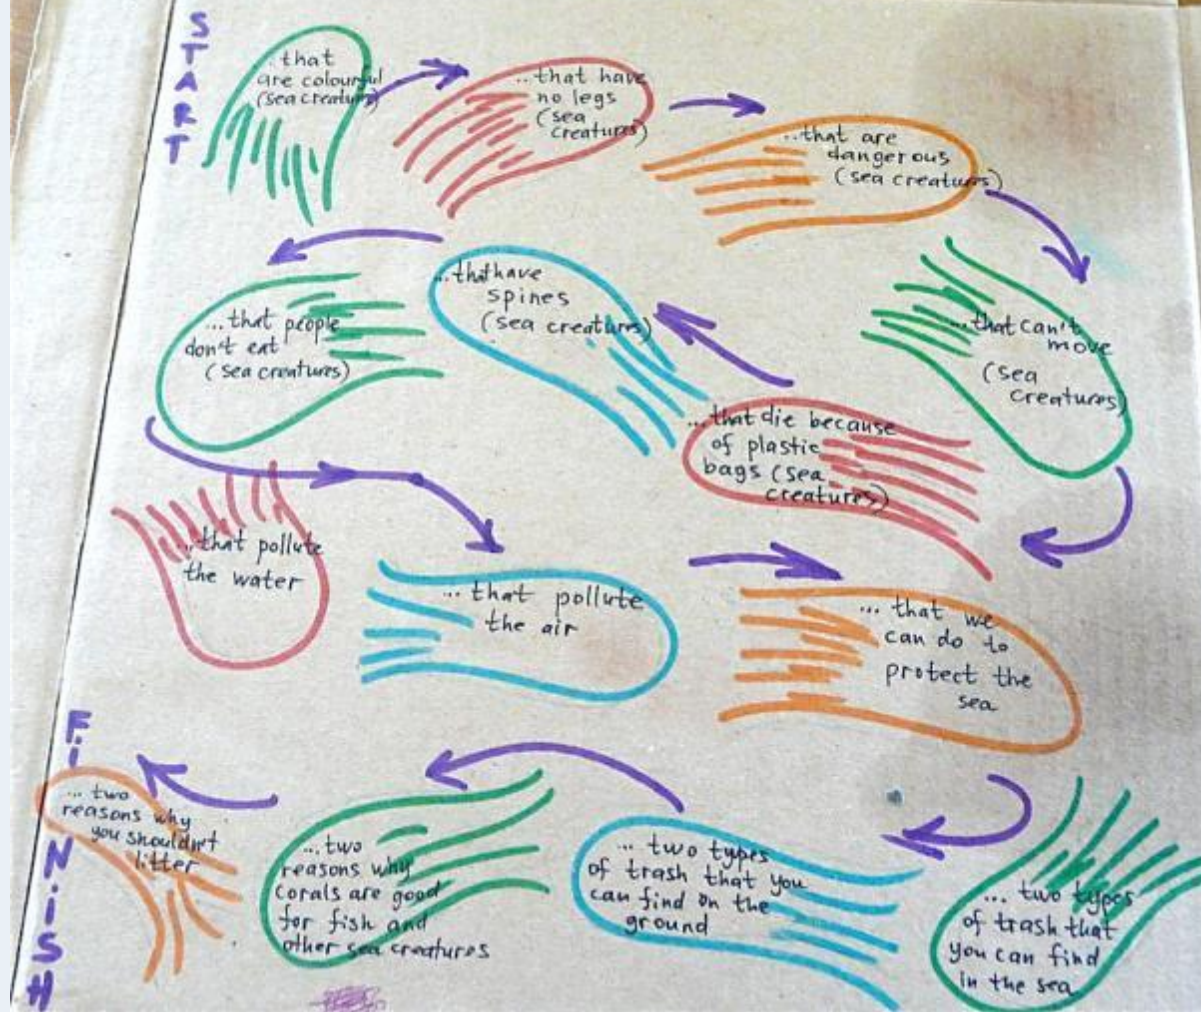 START
...that
are colourful
(sea creatures)
...that have
no legs
(sea
creatures)
...that are
dangerous
(sea creatures)
...that can't
move
(sea
creatures)
...that die because
of plastic
bags (sea
creatures)
...that have
spines
(sea creatures)
...that people
don't eat
(sea creatures)
...that pollute
the water
...that pollute
the air
...that we
can do to
protect the
sea
...two types
of trash that
you can find
in the sea
...two types
of trash that you
can find on the
ground
...two
reasons why
corals are good
for fish and
other sea creatures
...two
reasons why
you shouldn't
litter
FINISH